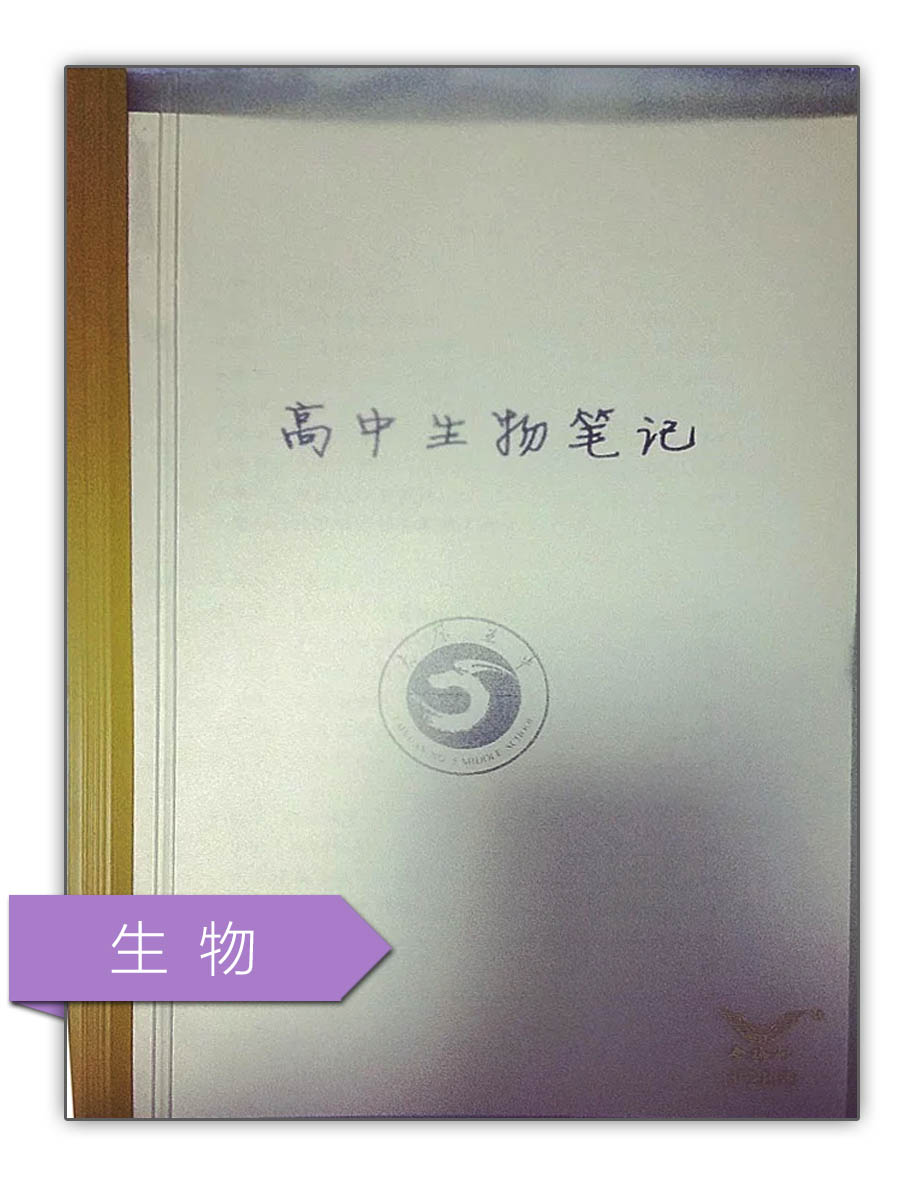 高中生物笔记
MIDDLE SCHOOL
生物